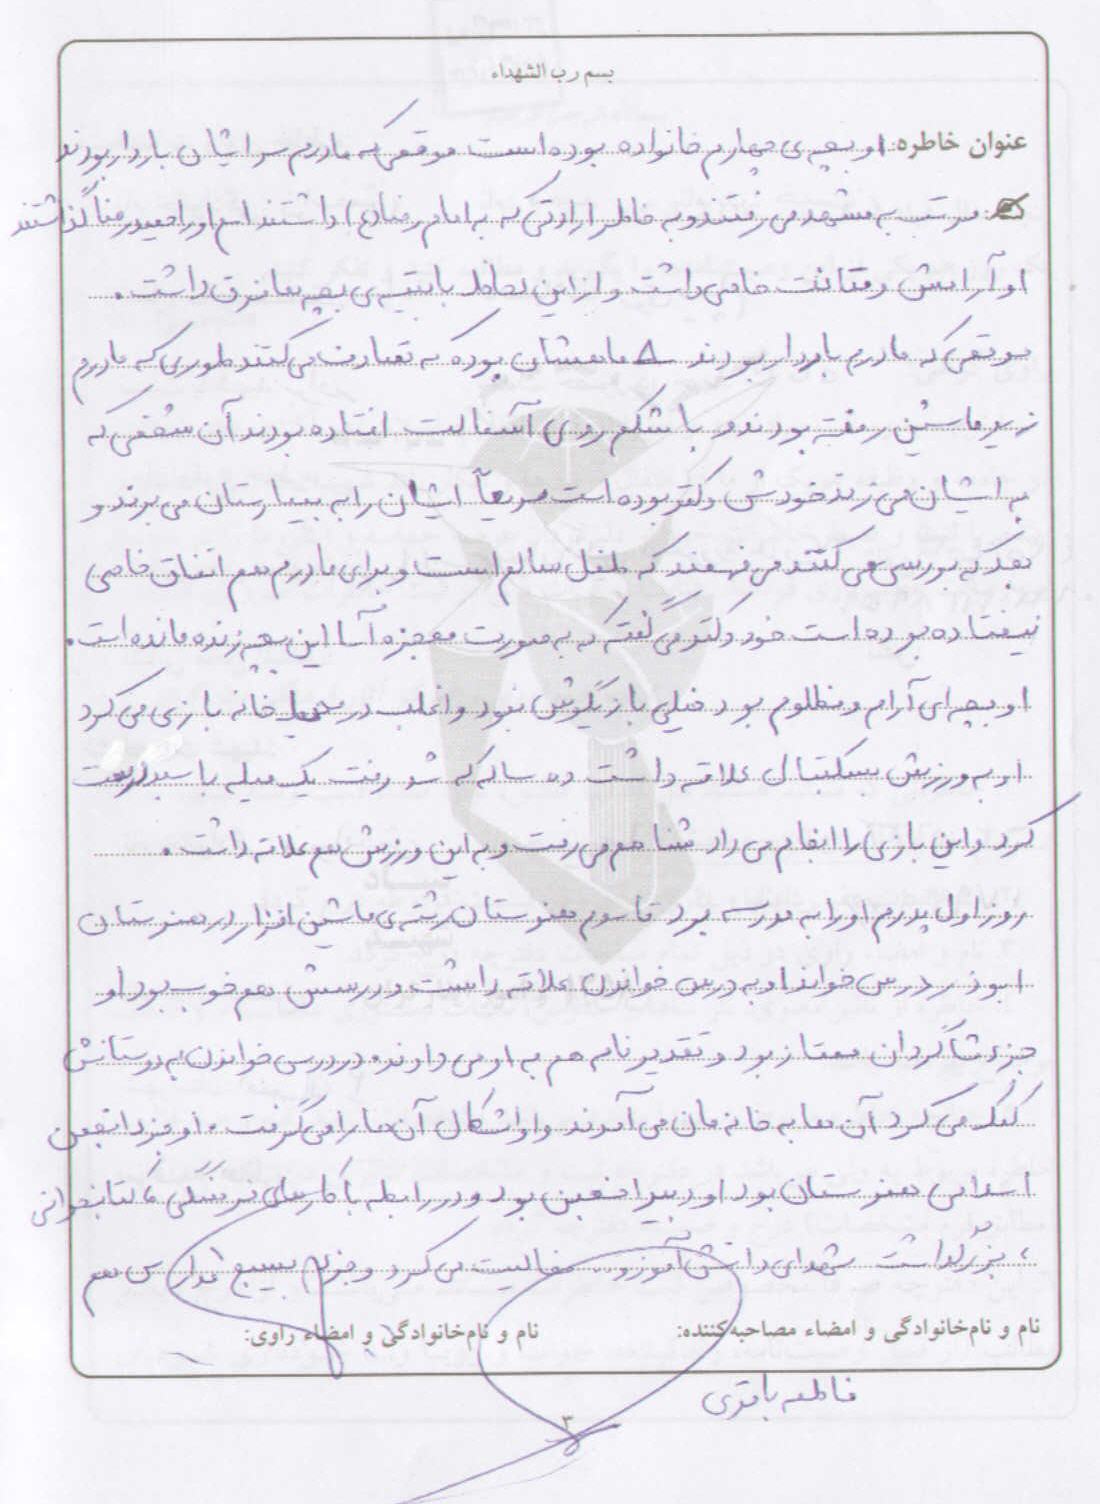 بسم رب الشهداء
عنوان خاطره: او بچه ی چهارم خانواده بوده است موقعی که مادرم سر ایشان باردار بودند
مرتب به مشهد می رفتند و به خاطر ارادتی که به امام رضا (ع) داشتند اسم او را حمیدرضا گذاشتند
او آرامش و متانت خاصی داشت و از این لحاظ با بقیه ی بچه ها فرق داشت.
موقعی که مادرم باردار بودند ۸ ماهشان بوده که تصادف می کنند طوری که مادرم
زیر ماشین رفته بودند و با شکم روی آسفالت افتاده بودند آن شخصی که
به ایشان می زند خودش دکتر بوده است سریعاً ایشان را به بیمارستان می برند و
بعد که بررسی می کنند می فهمند که طفل سالم است و برای مادرم هم اتفاق خاصی
نیفتاده بوده است خود دکتر می گفته که به صورت معجزه آسا این بچه زنده مانده است.
او بچه ای آرام و مظلوم بود خیلی بازیگوش نبود و اغلب در حیاط خانه بازی می کرد
او به ورزش بسکتبال علاقه داشت ده ساله که شد رفت یک میله با سبد درست
کرد و این بازی را انجام می داد شنا هم می رفت و به این ورزش هم علاقه داشت.
روز اول پدرم او را به مدرسه برد تا سوم هنرستان رشته ی ماشین افزار در هنرستان
ابوذر درس خواند او به درس خواندن علاقه داشت و درسش هم خوب بود او
جزء شاگردان ممتاز بود و تقدیرنامه هم به او می دادند در درس خواندن به دوستانش
کمک می کرد آن ها به خانه مان می آمدند و او اشکال آن ها را می گرفت. او جزء انجمن
اسلامی هنرستان بود او دبیر انجمن بود و در رابطه با کارهای فرهنگی، کتابخوانی
، بزرگداشت شهدای دانش آموز و.. فعالیت می کرد و جزء بسیج مدارس هم
نام و نام‌خانوادگی و امضاء مصاحبه‌کننده: نام و نام‌خانوادگی و امضاء راوی:
فاطمه باقری
۳